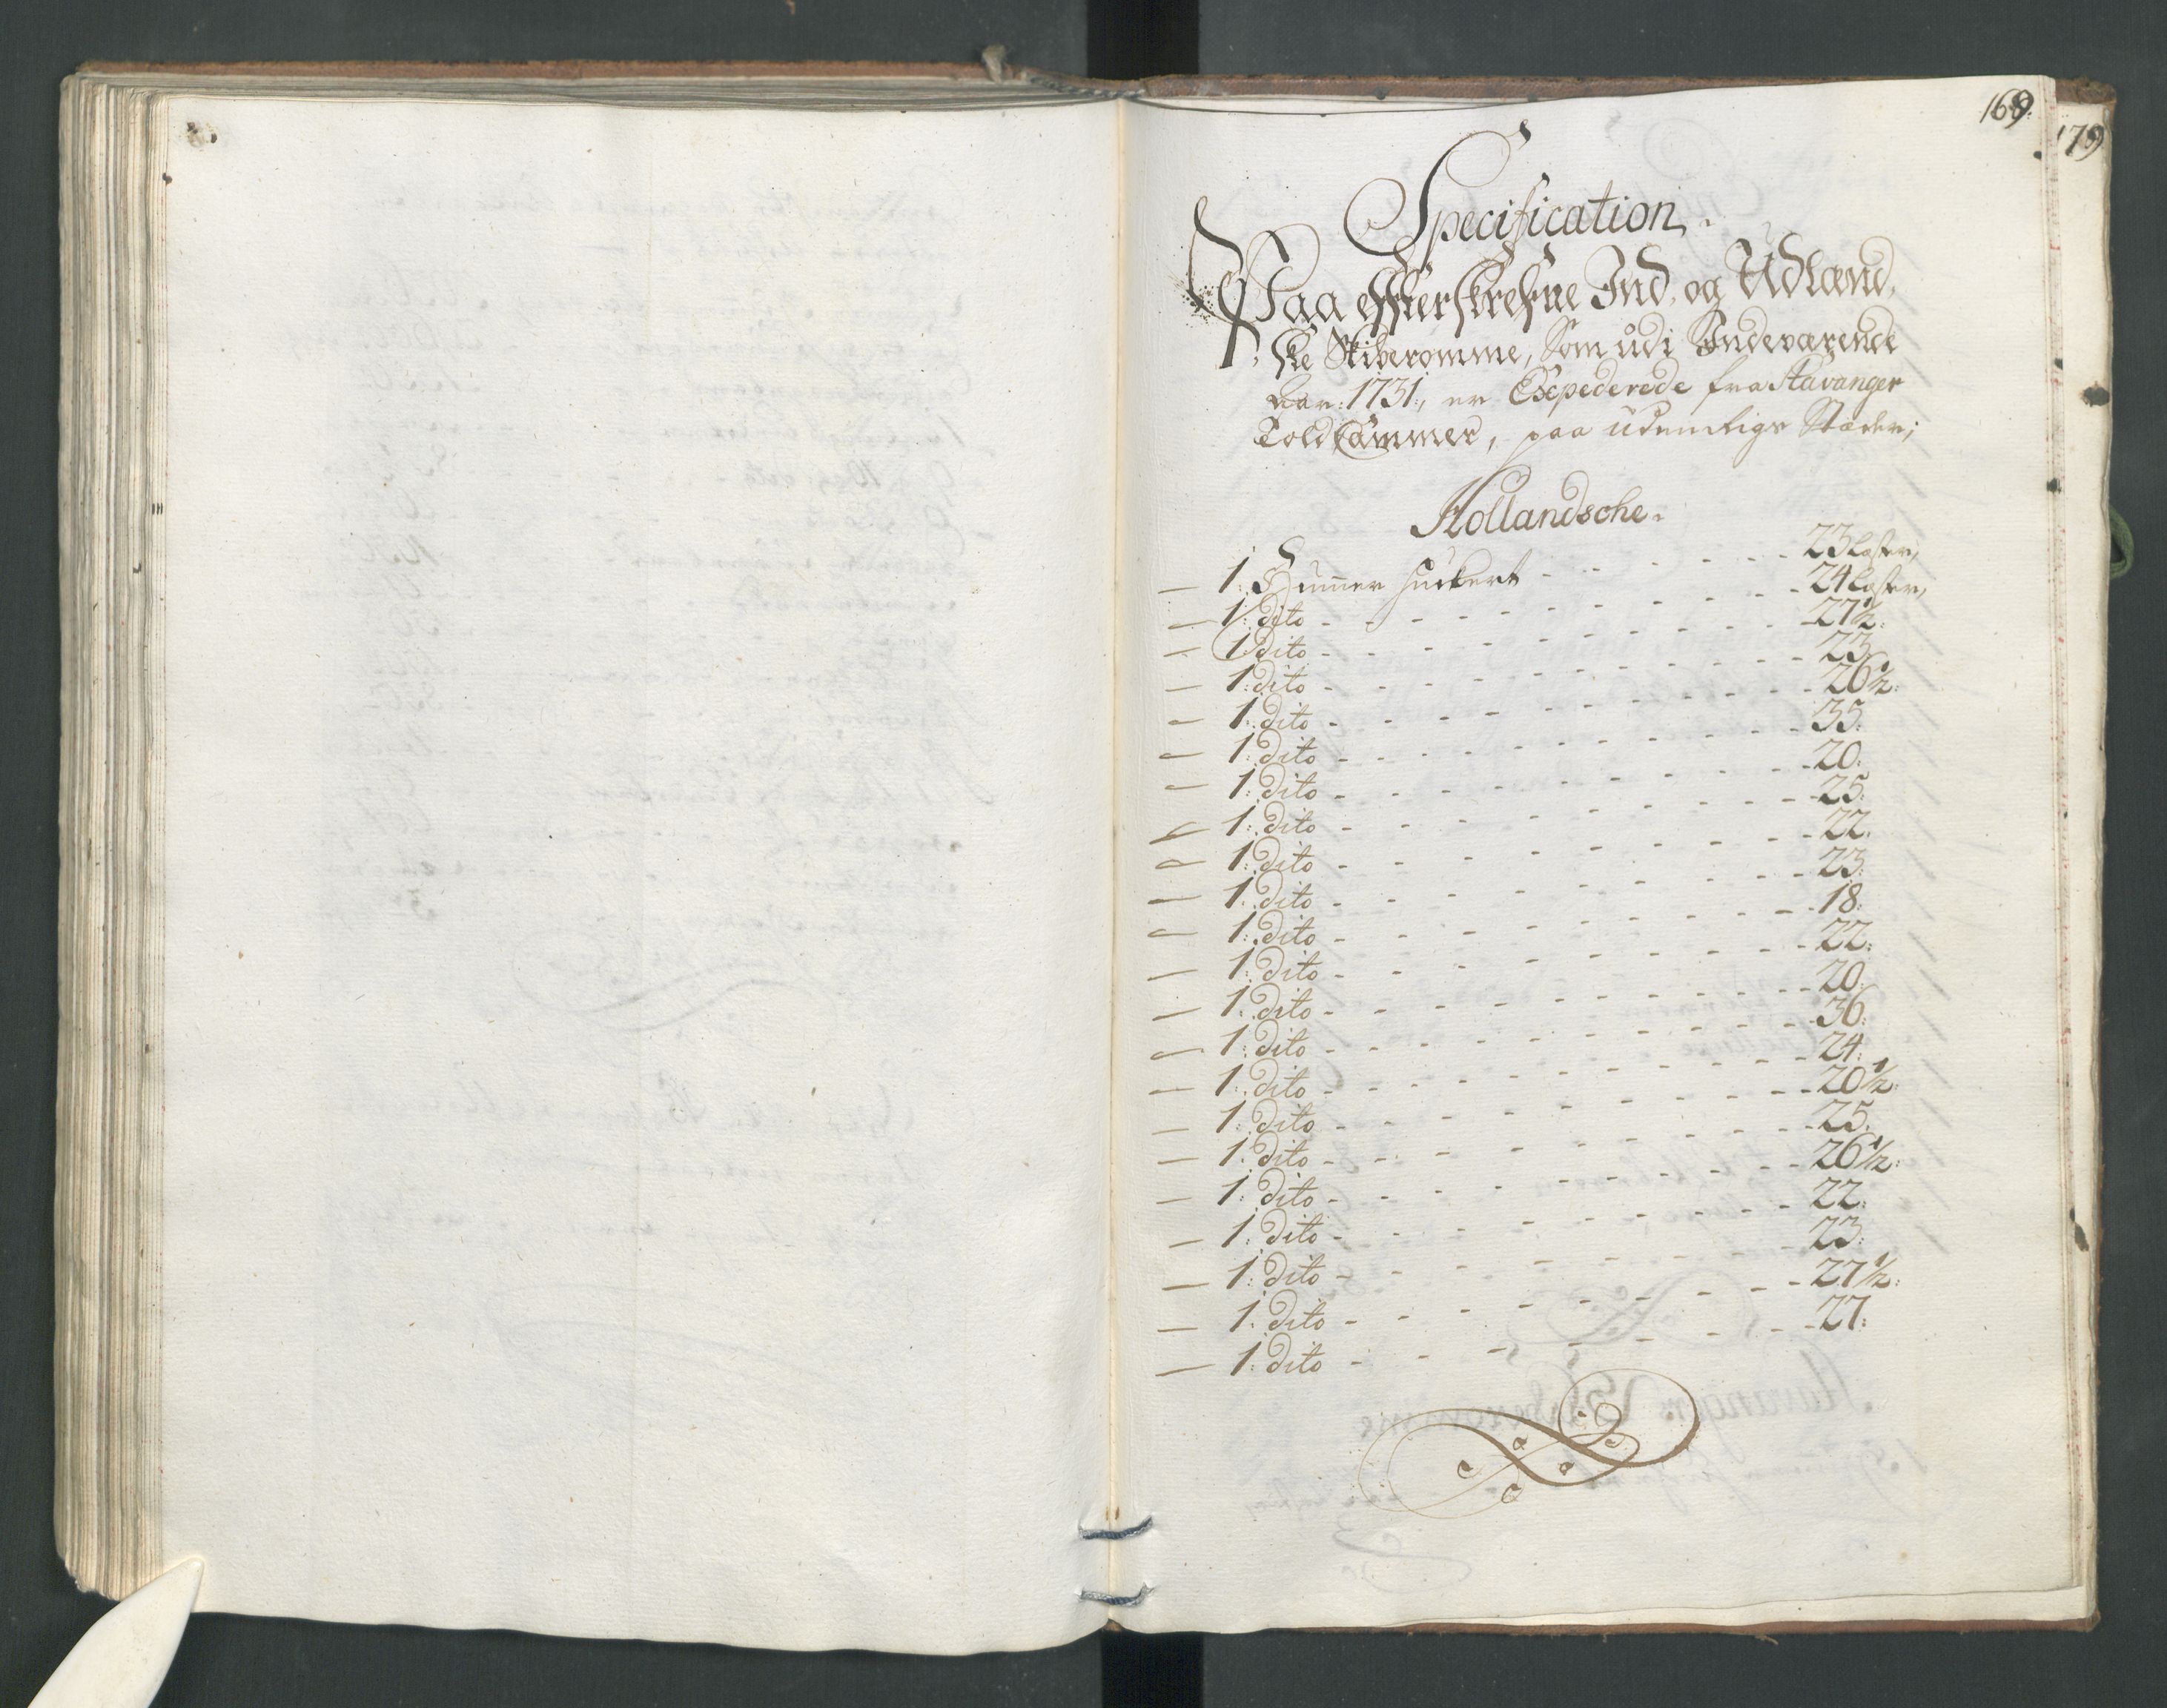 169
179
Specification,
Paa effterskrefne Ind, og Udlænd,
ske Skiberomme, Som udi Indeværende
aar: 1731, er Expederede fra Stavanger
Told Cammer, paa udenrigs Stæder;
Hollandsche.
1: Hummer huckert - - - - - 23 læster,
1: dito - - - - - 24 læster,
1 dito - - - - - 27½:
1: dito - - - - - 23.
1: dito - - - - - 26½:
1: dito - - - - - 35:
1: dito - - - - - 20:
1: dito - - - - - 25:
1: dito - - - - - 22:
1: dito - - - - - 23:
1: dito - - - - - 18:
1: dito - - - - - 22:
1: dito - - - - - 20:
1: dito - - - - - 36:
1: dito - - - - - 24:
1: dito - - - - - 20½:
1: dito - - - - - 25:
1: dito - - - - - 26½:
1: dito - - - - - 22:
1: dito - - - - - 23:
1: dito - - - - - 27½:
1: dito - - - - - 27: